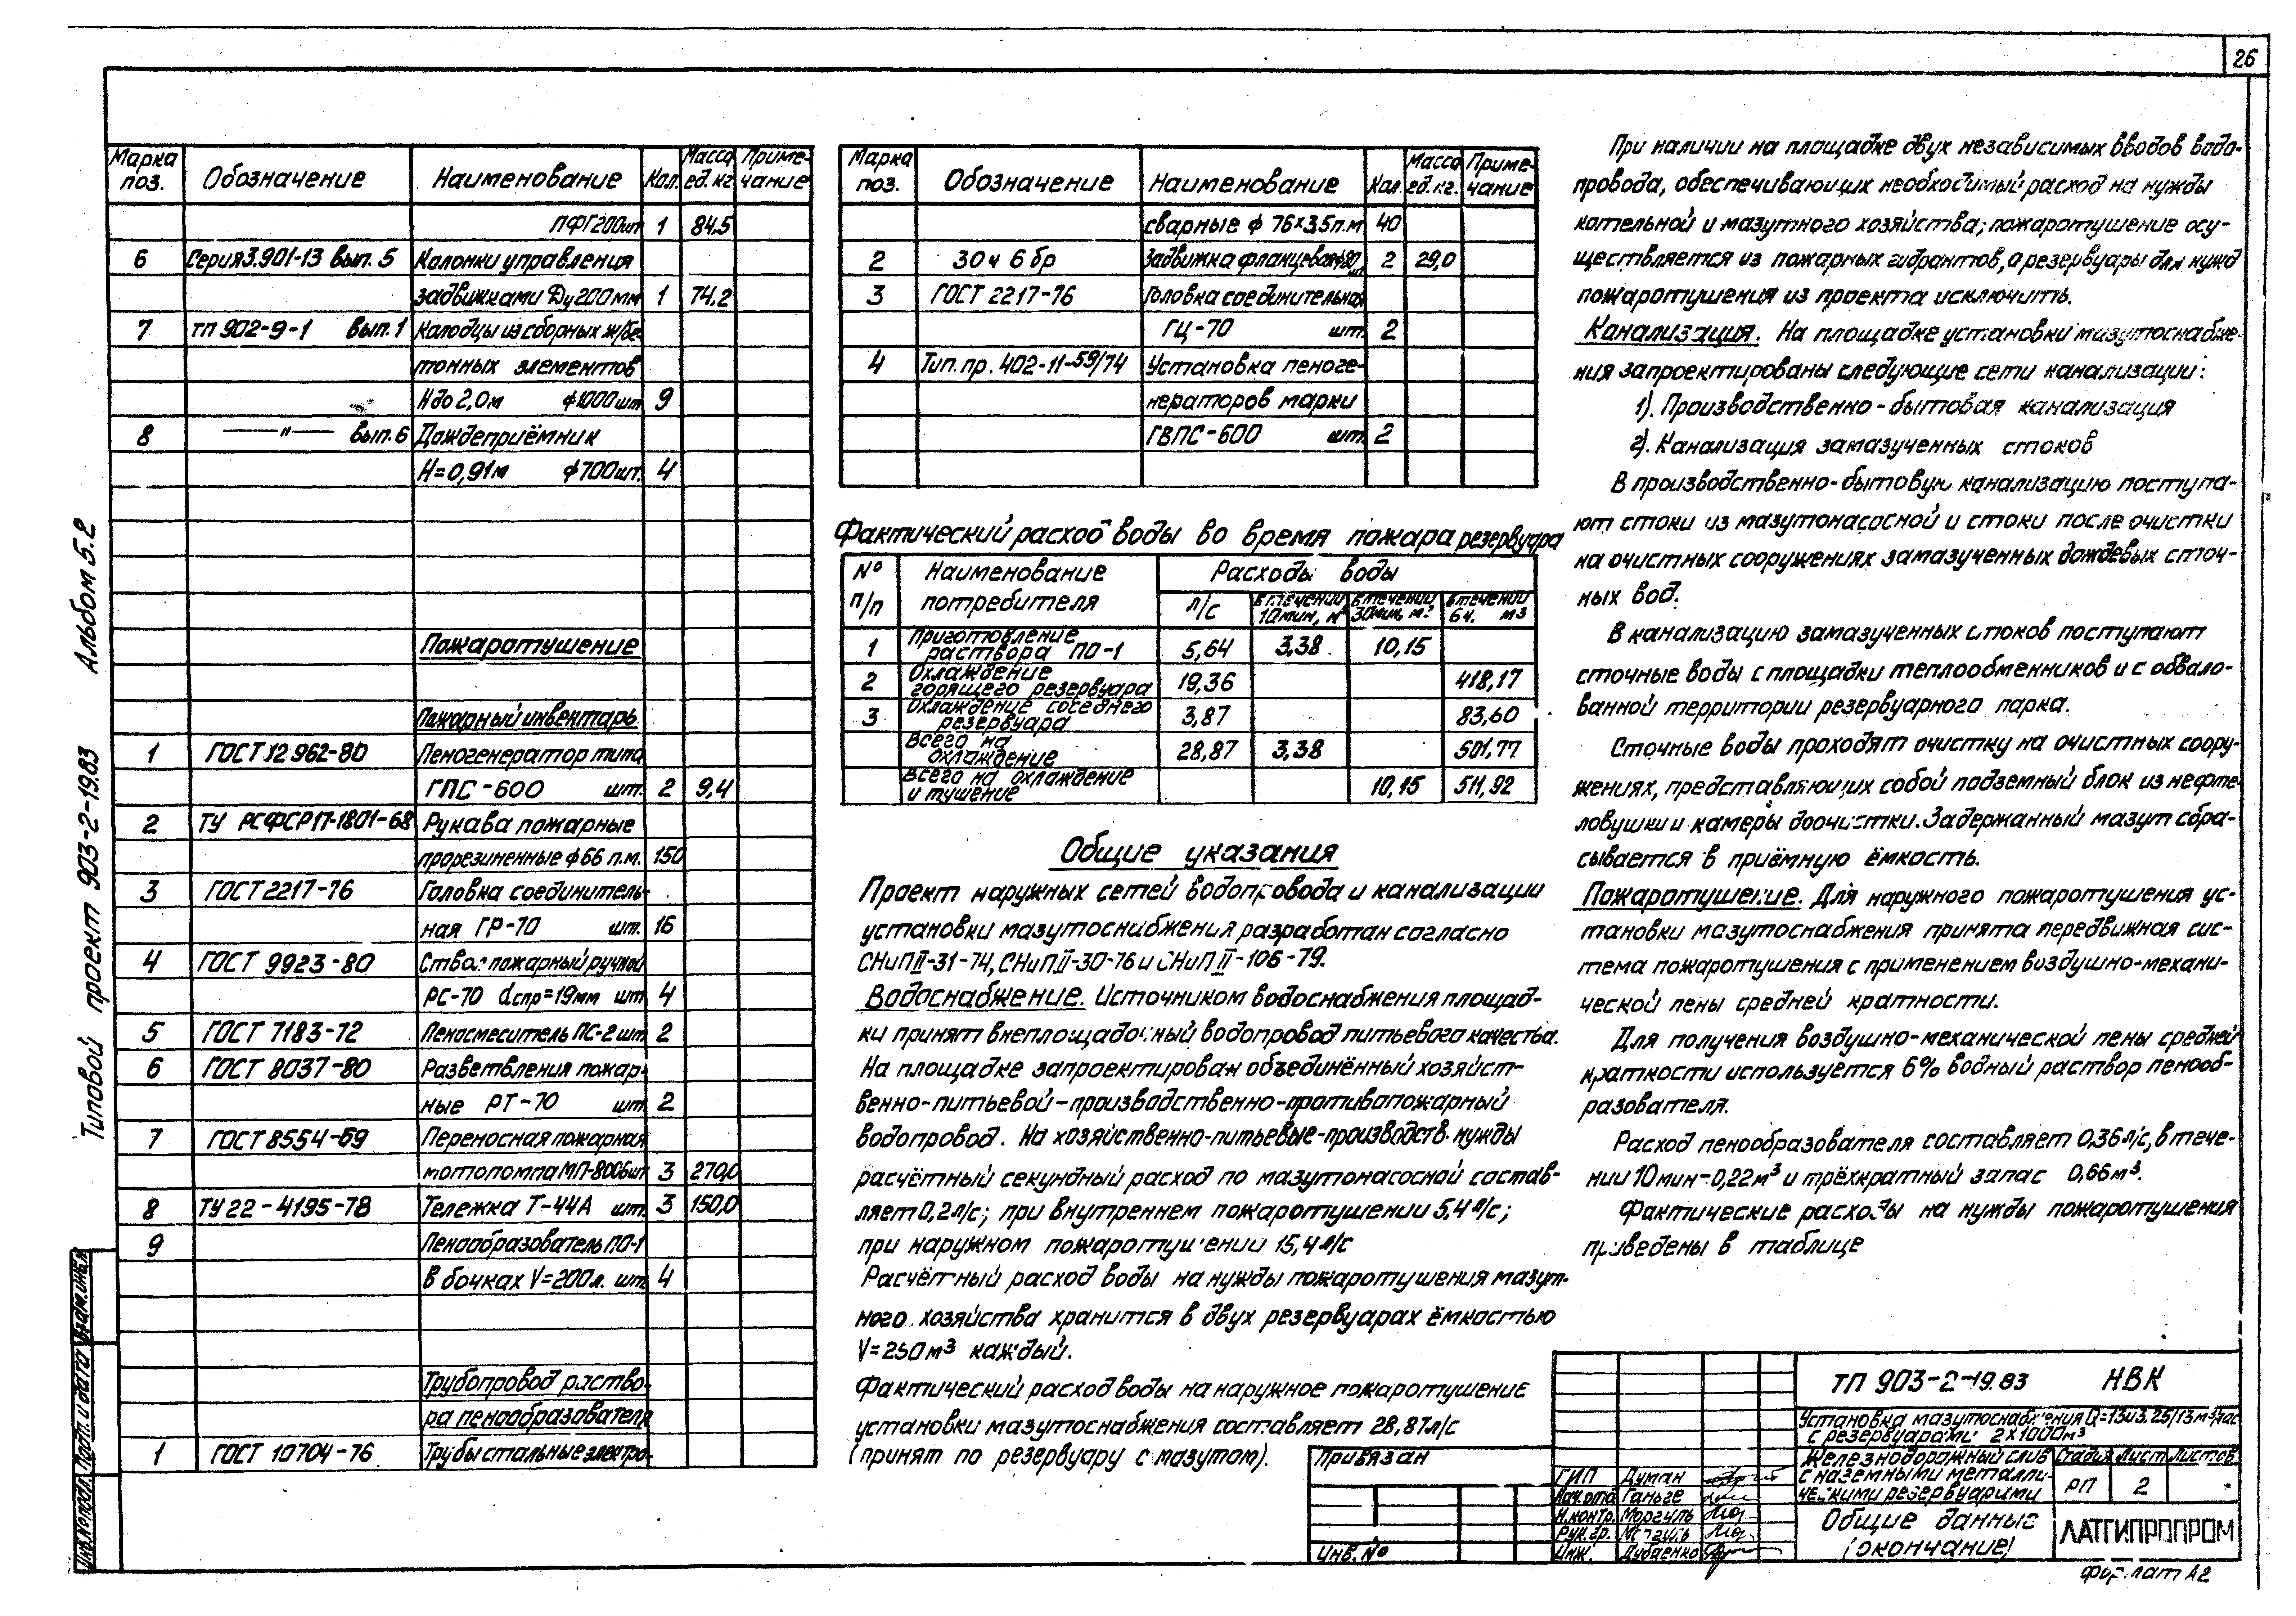 26
Альбом 5.2
Типовой проект 903-2-19.83
Марка поз. Обозначение Наименование Кол. Масса ед. кг Приме-чание
ПФГ200шт 1 84.5
6 Серия 3.901-13 вып. 5 Колонки управления
задвижками Ду200мм 1 74,2
7 тп 902-9-1 вып. 1 Колодцы из сборных ж/бе-
тонных элементов
H до 2,0м ф1000 шт 9
8 —"— вып. 6 Дождеприёмник
H=0,91м ф700шт. 4
Пожаротушение
Пожарный инвентарь
1 ГОСТ 12962-80 Пеногенератор типа
ГПС-600 шт. 2 9,4
2 ТУ РСФСР17-1801-68 Рукава пожарные
прорезиненные ф66 п.м. 150
3 ГОСТ 2217-76 Головка соединитель-
ная ГР-70 шт. 16
4 ГОСТ 9923-80 Ствол пожарный ручной
РС-70 dспр=19мм шт 4
5 ГОСТ 7183-72 Пеносмеситель ПС-2 шт 2
6 ГОСТ 8037-80 Разветвления пожар-
ные РТ-70 шт 2
7 ГОСТ 8554-69 Переносная пожарная
мотопомпа МП-800Бшт 3 270,0
8 ТУ 22-4195-78 Тележка Т-44А шт 3 150,0
9 Пенообразователь ПО-1
в бочках V=200л. шт 4
Трубопровод раство-
ра пенообразователя
1 ГОСТ 10704-76 Трубы стальные электро-
Марка поз. Обозначение Наименование Кол. Масса ед. кг. Приме-чание
сварные ф 76×3.5 п.м 40
2 30ч 6 бр Задвижка фланцевая ф80 шт 2 29,0
3 ГОСТ 2217-76 Головка соединительная
ГЦ-70 шт. 2
4 Тип. пр. 402-11-59/74 Установка пеноге-
нераторов марки
ГВПС-600 шт. 2
Фактический расход воды во время пожара резервуара
№ п/п Наименование потребителя Расходы воды
л/с в течении 10мин, м³ в течении 30мин, м³ в течении 6ч. м3
1 Приготовление раствора ПО-1 5,64 3,38 10,15
2 Охлаждение горящего резервуара 19,36 418,17
3 Охлаждение соседнего резервуара 3,87 83,60
Всего на охлаждение 28,87 3,38 501,77
Всего на охлаждение и тушение 10,15 511,92
Общие указания
Проект наружных сетей водопровода и канализации
установки мазутоснабжения разработан согласно
СНиПII-31-74, СНиПII-30-76 и СНиП II-106-79.
Водоснабжение. Источником водоснабжения площад-
ки принят внеплощадочный водопровод питьевого качества.
На площадке запроектирован объединённый хозяйст-
венно-питьевой-производственно-противопожарный
водопровод. На хозяйственно-питьевые-производств. нужды
расчётный секундный расход по мазутонасосной состав-
ляет 0,2л/с; при внутреннем пожаротушении 5,4 л/с;
при наружном пожаротушении 15,4л/с
Расчётный расход воды на нужды пожаротушения мазут-
ного хозяйства хранится в двух резервуарах ёмкостью
V=250м³ каждый.
Фактический расход воды на наружное пожаротушение
установки мазутоснабжения составляет 28,87л/с
(принят по резервуару с мазутом).
При наличии на площадке двух независимых вводов водо-
провода, обеспечивающих необходимый расход на нужды
котельной и мазутного хозяйства; пожаротушение осу-
ществляется из пожарных гидрантов, а резервуары для нужд
пожаротушения из проекта исключить.
Канализация. На площадке установки мазутоснабже-
ния запроектированы следующие сети канализации:
1). Производственно-бытовая канализация
2). Канализация замазученных стоков
В производственно-бытовую канализацию поступа-
ют стоки из мазутонасосной и стоки после очистки
на очистных сооружениях замазученных дождевых сточ-
ных вод.
В канализацию замазученных стоков поступают
сточные воды с площадки теплообменников и с обвало-
ванной территории резервуарного парка.
Сточные воды проходят очистку на очистных соору-
жениях, представляющих собой подземный блок из нефте-
ловушки и камеры доочистки. Задержанный мазут сбра-
сывается в приёмную ёмкость.
Пожаротушение. Для наружного пожаротушения ус-
тановки мазутоснабжения принята передвижная сис-
тема пожаротушения с применением воздушно-механи-
ческой пены средней кратности.
Для получения воздушно-механической пены средней
кратности используется 6% водный раствор пенооб-
разователя.
Расход пенообразователя составляет 0,36л/с, в тече-
нии 10мин-0,22м³ и трёхкратный запас 0,66м³.
Фактические расходы на нужды пожаротушения
приведены в таблице
ТП 903-2-19.83 НВК
Установка мазутоснабжения Q=13и3.25/13м³/час
с резервуарами 2×1000м³
Железнодорожный слив
с наземными металли-
ческими резервуарами
Стадия Лист Листов
РП 2
Общие данные
(окончание)
ЛАТГИПРОПРОМ
Формат А2
Привязан
Инв. №
ГИП Думан
Нач.отд. Ганьге
Н.контр. Моргуль
Рук. гр. Моргуль
Инж.
Взам.инв.№
Подп. и дата
Инв.№ подл.